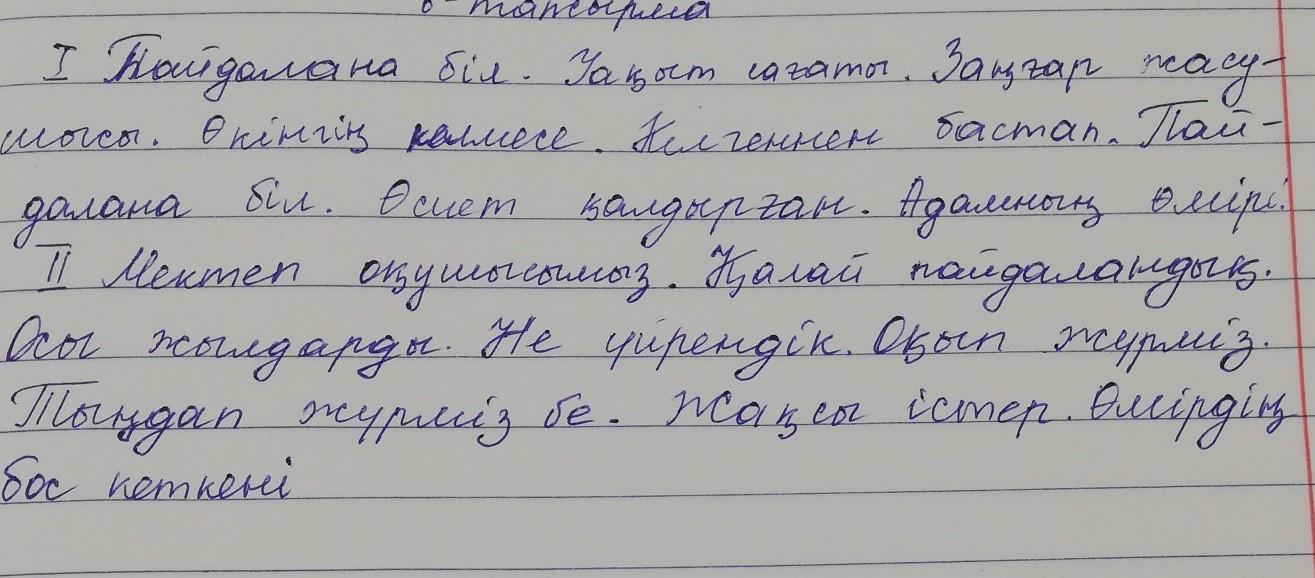 6-тапсырма
I Пайдалана біл. Уақыт сағаты. Заңғар жасу-
шысы. Өкінгің келмесе. Келгеннен бастап. Пай-
далана біл. Өсиет қалдырған. Адамның өмірі.
II Мектеп оқушысымыз. Қалай пайдаландық.
Осы жылдарды. Не үйрендік. Оқып жүрміз.
Тыңдап жүрміз бе. Жақсы істер. Өмірдің
бос кеткені